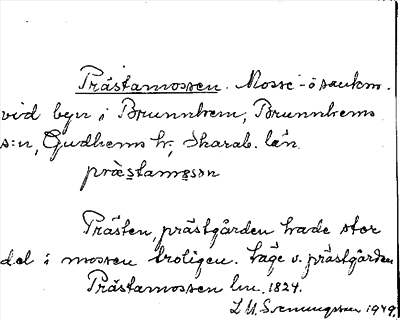 Prästamossen. Mosse - ö sankm.
vid byn i Brunnhem, Brunnhems
s:n, Gudhems hr, Skarab. län.
præstamosən
Prästen, prästgården hade stor
del i mossen troligen. Läge v. prästgården
Prästamossen lm. 1824.
1949.